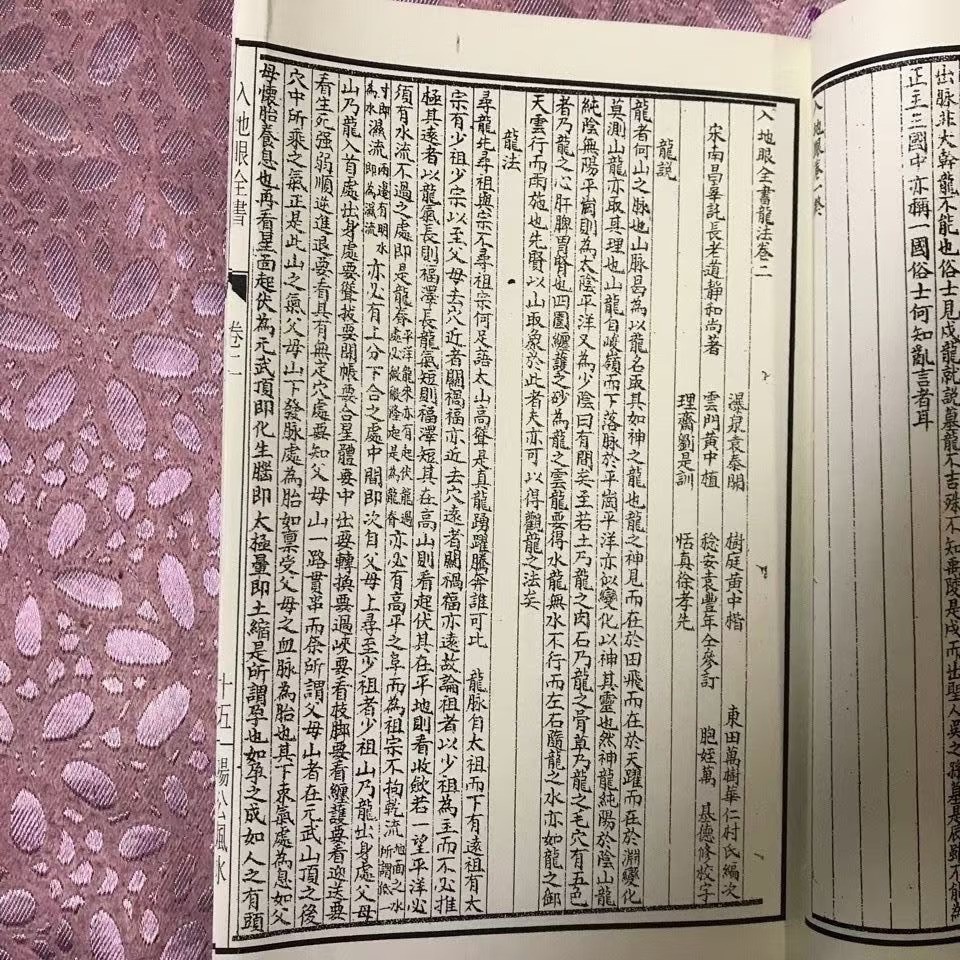 出脉非大幹龍不能也俗士見戌龍就說墓龍不吉殊不知禹陵是戌而出聖人吳之孫墓是辰雖不能為
正主三國中亦稱一國俗士何知亂言者耳
入地眼卷一終
入地眼全書龍法卷二
宋南昌辜託長老道靜和尚著
瀑泉袁泰開 樹庭黄中楷 東田萬樹華仁村氏編次
雲門黄中植 稔安袁豐年仝參訂 胞姪萬 基德修校字
理齋劉是訓 恬真徐孝先
龍説
龍者何山之脉也山脉曷為以龍名取其如神之龍也龍之神見而在於田飛而在於天躍而在於淵變化
莫測山龍亦取其理也山龍自峻嶺而下落脉於平崗平洋亦似變化以神其靈也然神龍純陽於陰山龍
純陰無陽平崗則為太陰平洋又為少陰曰有間矣至若土乃龍之肉石乃龍之骨草乃龍之毛穴有五色
者乃龍之心肝脾胃腎也四圍纏護之砂為龍之雲龍要得水龍無水不行而左右隨龍之水亦如龍之御
天雲行而雨施也先賢以山取象於此者夫亦可以得觀龍之法矣
龍法
尋龍先尋祖與宗不尋祖宗何足語太山高聳是真龍踴躍騰奔誰可比 龍脉自太祖而下有遠祖有太
宗有少祖少宗以至父母去穴近者關禍福亦近去穴遠者關禍福亦遠故論祖者以少祖為主而不必推
極其遠者以龍氣長則福澤長龍氣短則福澤短其在高山則看起伏其在平地則看收歛若一望平洋必
須有水流不過之處即是龍脊平洋龍來亦有起伏龍過處必鍼鍼隆起是為龍脊亦必有高平之阜而為祖宗不拘乾流地面之水所謂低一
寸即為水濕流兩邊有明水即為濕流亦必有上分下合之處中間即次自父母上尋至少祖者少祖山乃龍出身處父母
山乃龍入首處出身處要聳拔要開帳要合星體要中出要轉換要過峽要看枝脚要看纏護要看迎送要
看生死强弱順逆進退要看具有無定穴處要知父母山一路貫串而來所謂父母山者在元武山頂之後
穴中所乘之氣正是此山之氣父母山下發脉處為胎如禀受父母之血脉為胎也其下束氣處為息如父
母懷胎養息也再看星面起伏為元武頂即化生腦即太極暈即土縮是所謂孕也如孕之成如人之有頭
入地眼全書
卷二
十五